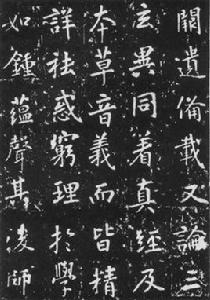 闕遺備載又論三
玄異同着真經及
本草音義而皆精
詳祛惑窮理於學
如鍾蘊聲其師